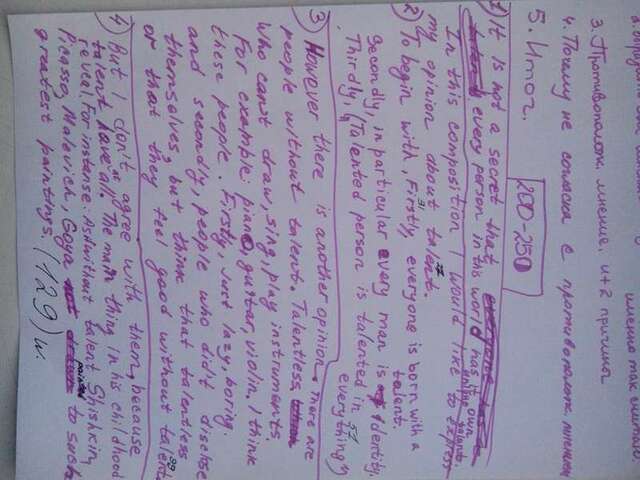 3. Противополож. мнение, и+2 причины
4. Почему не согласна с противополож. мнением
5. Итог.
200-250
1) It is not a secret that
every person in this world has its own talents.
In this composition I would like to express
my opinion about talent.
2) To begin with, Firstly, everyone is born with a talent.
Secondly, in particular every man is identity.
Thirdly, "Talented person is talented in everything")
3) However there is another opinion. There are
people without talent. Talentless,
who can't draw, sing, play instruments.
For example: piano, guitar, violin. I think
these people. Firstly, just lazy, boring.
and secondly, people who did't disclose
themselves, but think that talentless
or that they feel good without talent
4) But I don't agree with them, because
talent have all. The main thing in his childhood
reveal. For instanse: As without talent Shishkin,
Picasso, Malevich, Goya painted to such
greatest paintings. (129) w.